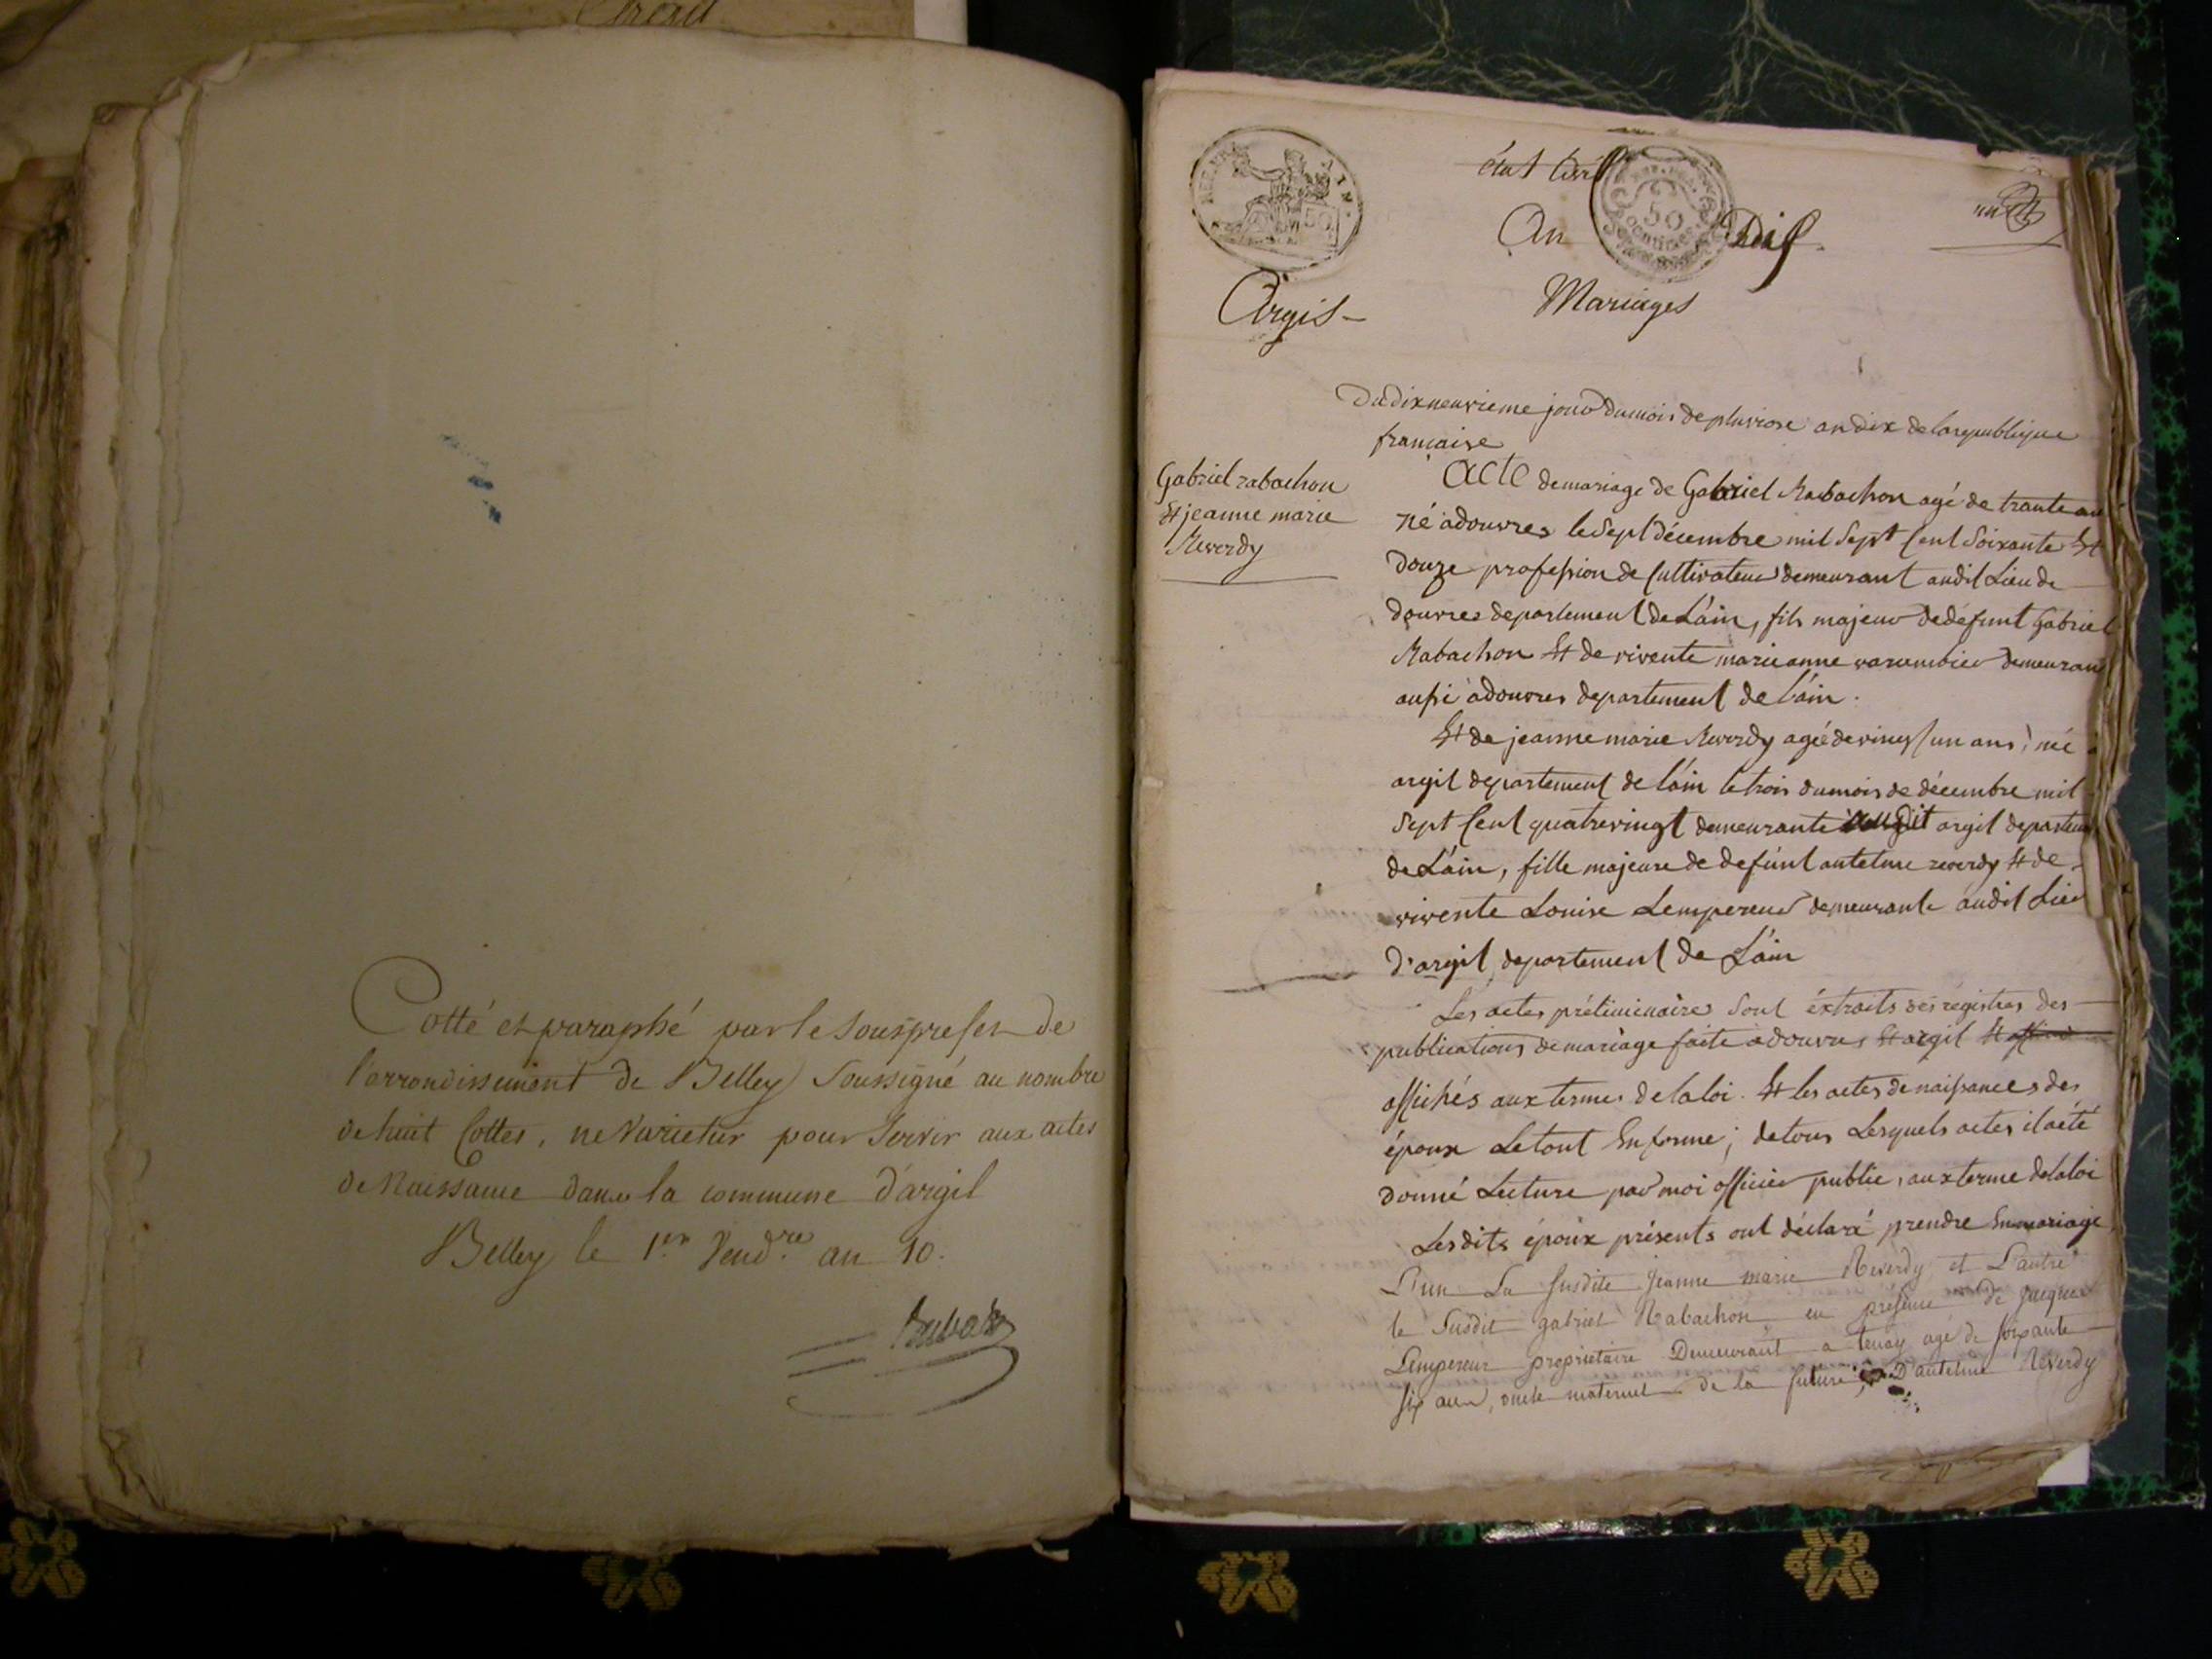 Cotté et paraphé par le Souspréfet de
l'arrondissement de Belley Soussigné au nombre
de huit Cottes, ne Varietur pour Servir aux actes
de Naissance dans la commune d'argil
Belley le 1er Vend.re an 10.
REP. FRA. AIN.
50
état Civil
REP. FRA.
50
Centimes
un
An Dix.
Argis-
Mariages
Du dixneuvieme jour du mois de pluviose an dix de la republique
francaise
Gabriel rabachon
Et jeanne marie
Reverdy
Acte de mariage de Gabriel Rabachon agé de trante an
né a douvres le Sept décembre mil Sept Cent Soixante Et
douze profession de Cultivateur demeurant audit Lieu de
douvres departement de L'ain, fils majeur de defunt Gabriel
Rabachon Et de vivente marie anne demeurant
aussi a douvres departement de l'ain.
Et de jeanne marie Reverdy agée de vingt un ans, née a
argil departement de l'ain le trois du mois de décembre mil
Sept Cent quatrevingt demeurante audit argil departem
de L'ain, fille majeure de defunt antelme reverdy Et de
vivente Louise Lempereur demeurante audit Lieu
d'argil departement de L'ain
Les actes préliminaires Sont éxtraits des registres des
publications de mariage faite a douvres Et argil Et
affichés aux termes de la loi. Et les actes de naissances des
époux Le tout En forme; de tous Lesquels actes il a été
donné Lecture par moi officier public, aux terme de la loi
Les dits époux présents ont déclaré prendre En mariage
L'un La susdite Jeanne marie Reverdy et L'autre
le Susdit gabriel Rabachon en présence de jacques
Lempereur propriétaire Demeurant a tenay agé de soixante
six ans, oncle maternel de la future, D'antelme Reverdy